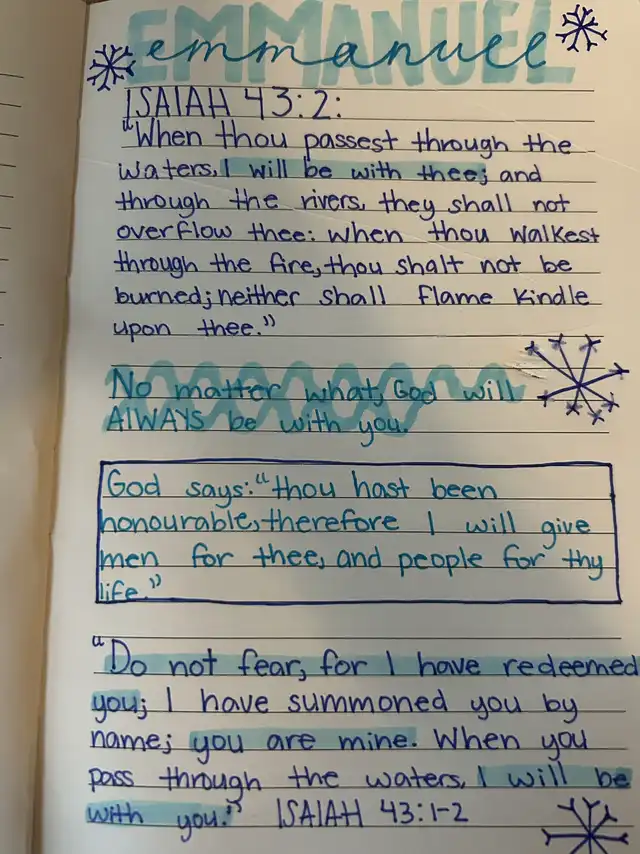 EMMANUEL
emmanuel
ISAIAH 43:2:
"When thou passest through the
waters, I will be with thee; and
through the rivers, they shall not
overflow thee: when thou walkest
through the fire, thou shalt not be
burned; neither shall flame kindle
upon thee."
No matter what, God will
AlWAYS be with you.
God says: "thou hast been
honourable, therefore I will give
men for thee, and people for thy
life."
"Do not fear, for I have redeemed
you; I have summoned you by
name; you are mine. When you
pass through the waters, I will be
with you." ISAIAH 43:1-2